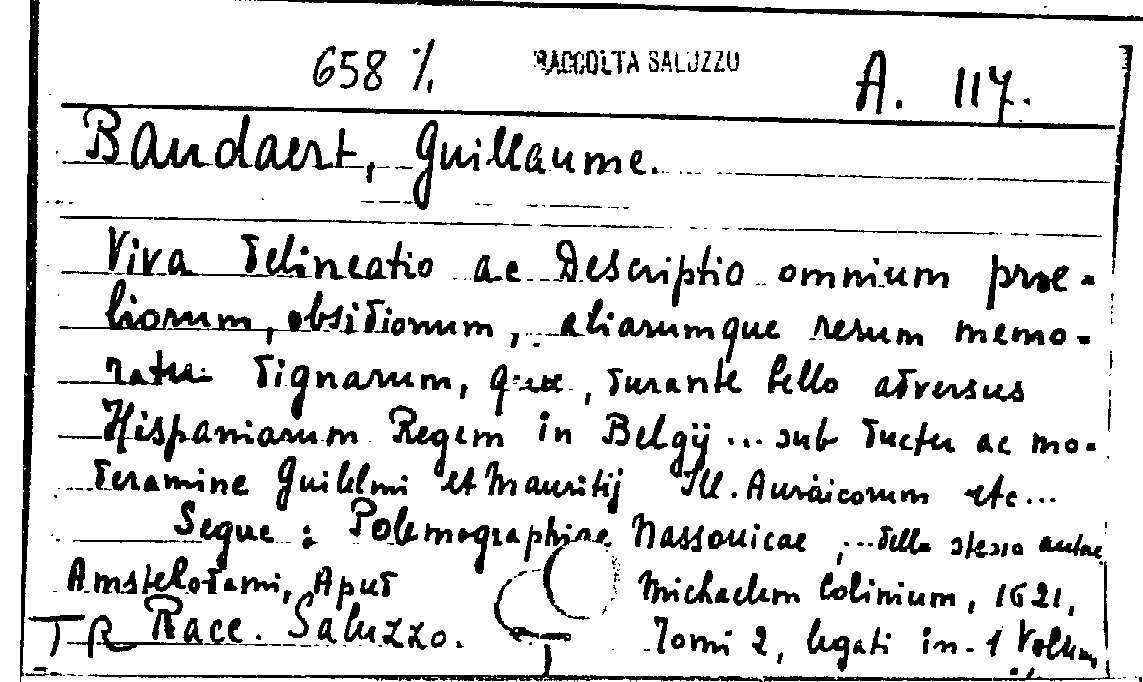 658 % RACCOLTA SALUZZO A. 117.
Baudaert, Guillaume.
Viva delineatio ac Descriptio omnium prae-
liorum, obsidionum, aliarumque rerum memo-
ratu dignarum, quae, durante bello adversus
Hispaniarum Regem in Belgij ... sub ductu ac mo-
deramine Guilelmi et Mauritij Ill. Auraicorum etc...
Segue : Polemographiae Nassouicae, ... dello stesso autore
Amstelodami, Apud Michaelem Colinium, 1621,
TR Racc. Saluzzo. Tomi 2, legati in-1 Volum